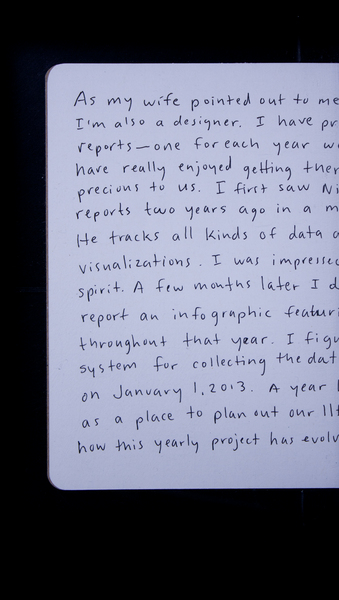 As my wife pointed out to me
I'm also a designer. I have pr
reports—one for each year w
have really enjoyed getting ther
precious to us. I first saw Ni
reports two years ago in a m
He tracks all kinds of data a
visualizations. I was impressed
spirit. A few months later I d
report an infographic featuri
throughout that year. I figu
system for collecting the dat
on January 1, 2013. A year l
as a place to plan out our 11t
how this yearly project has evolv